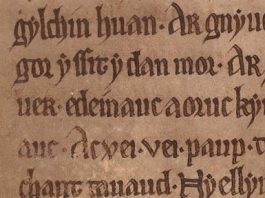 gylchin huan. Ar gnyuc
gor yssit y dan mor. Ar
uer. edeinauc aoruc ky
auc. Ac wei. vei. paup. t
chant tauaud. Ny ellyn